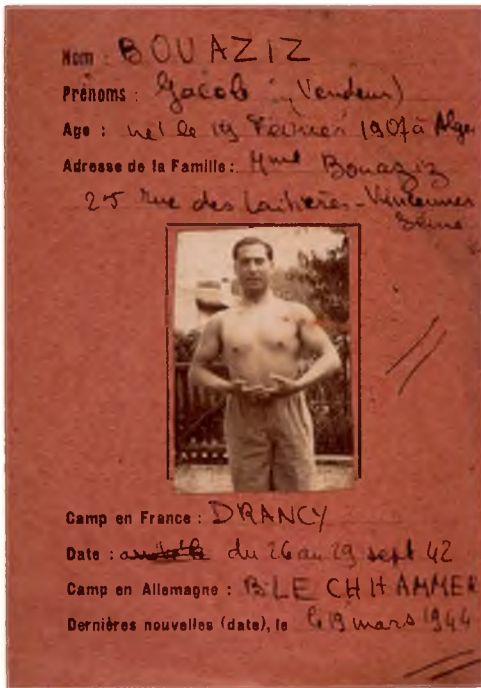 Nom : BOUAZIZ
Prénoms : Jacob (Vendeur)
Age : né le 19 Février 1907 à Alger
Adresse de la Famille : Mme Bouaziz
25 rue des Laitières - Vincennes
Seine
Camp en France : DRANCY
Date : du 26 au 29 sept 42
Camp en Allemagne : BLECHHAMMER
Dernières nouvelles (date), le 19 mars 1944